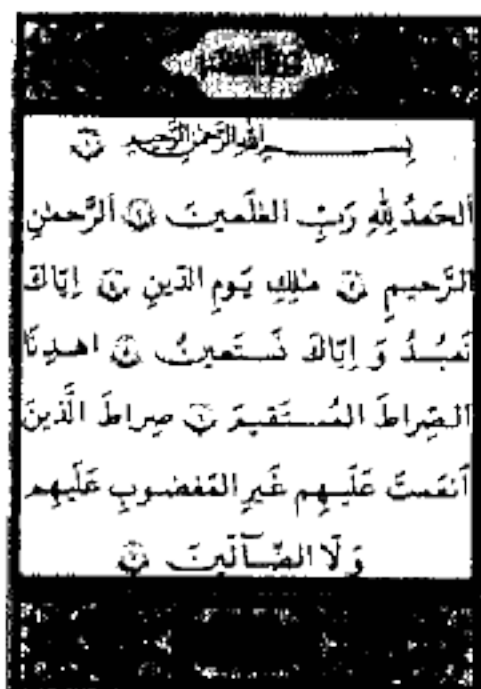 بِسْمِ اللهِ الرَّحْمٰنِ الرَّحِيمِ ﴿١﴾
اَلحَمدُ لِلّٰهِ رَبِّ العٰلَمينَ ﴿٢﴾ اَلرَّحمٰنِ
الرَّحيمِ ﴿٣﴾ مٰلِكِ يَومِ الدّينِ ﴿٤﴾ اِيّاكَ
نَعبُدُ وَ اِيّاكَ نَستَعينُ ﴿٥﴾ اهدِنَا
الصِّراطَ المُستَقيمَ ﴿٦﴾ صِراطَ الَّذينَ
اَنعَمتَ عَلَيهِم غَيرِ المَغضوبِ عَلَيهِم
وَلَا الضّآلّينَ ﴿٧﴾